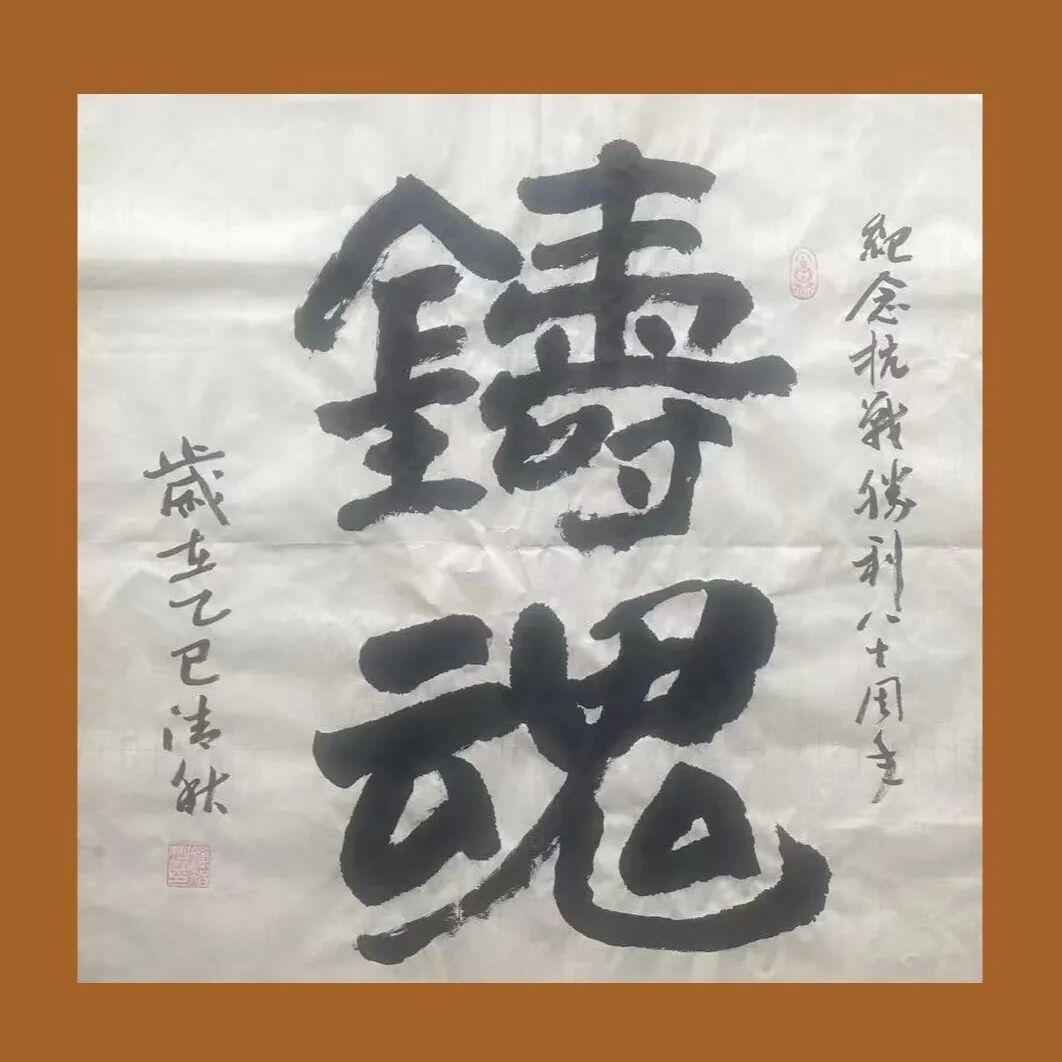 紀念抗戰勝利八十周年
鑄魂
歲在乙巳清秋